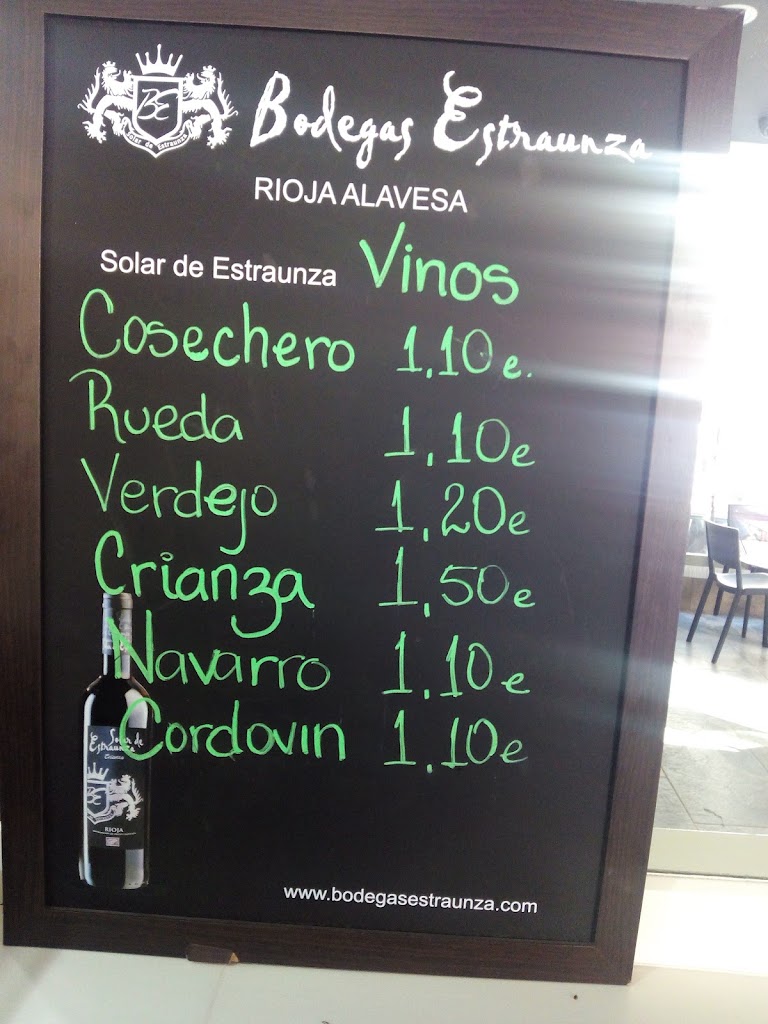 BE
Solar de Estraunza
Bodegas Estraunza
RIOJA ALAVESA
Solar de Estraunza Vinos
Cosechero 1,10 e.
Rueda 1,10 e
Verdejo 1,20 e
Crianza 1,50 e
Navarro 1,10 e
Cordovin 1,10 e
Solar de
Estraunza
Crianza
BE
RIOJA
www.bodegasestraunza.com